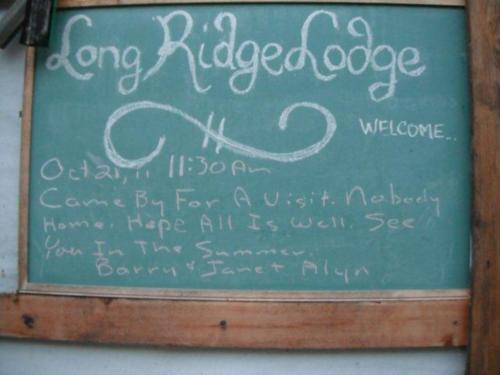 Long Ridge Lodge
WELCOME...
Oct 21, 11 11:30 Am
Came By For A Visit. Nobody
Home. Hope All Is Well. See
You In The Summer.
Barry & Janet Alyn